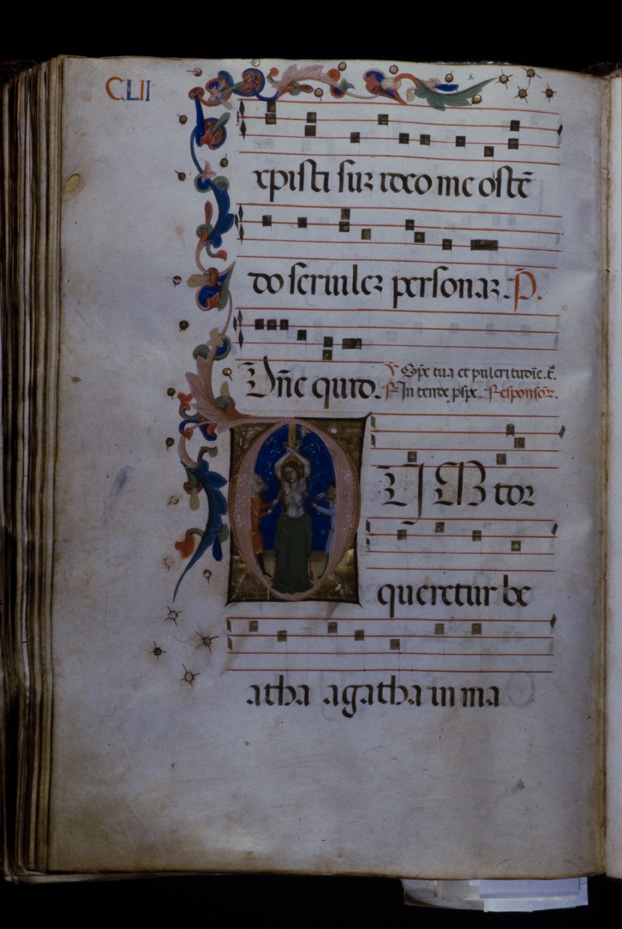 CLII
xpisti sūꝫ toto me ostē
do seruilez personaꝫ. P̄.
Dn̄e quid. ℣ Spe tua et pulcritudīe. E.
℟ Intende pspe. Responsoꝛ.
DUM toꝛ
queretur be
atha agatha in ma